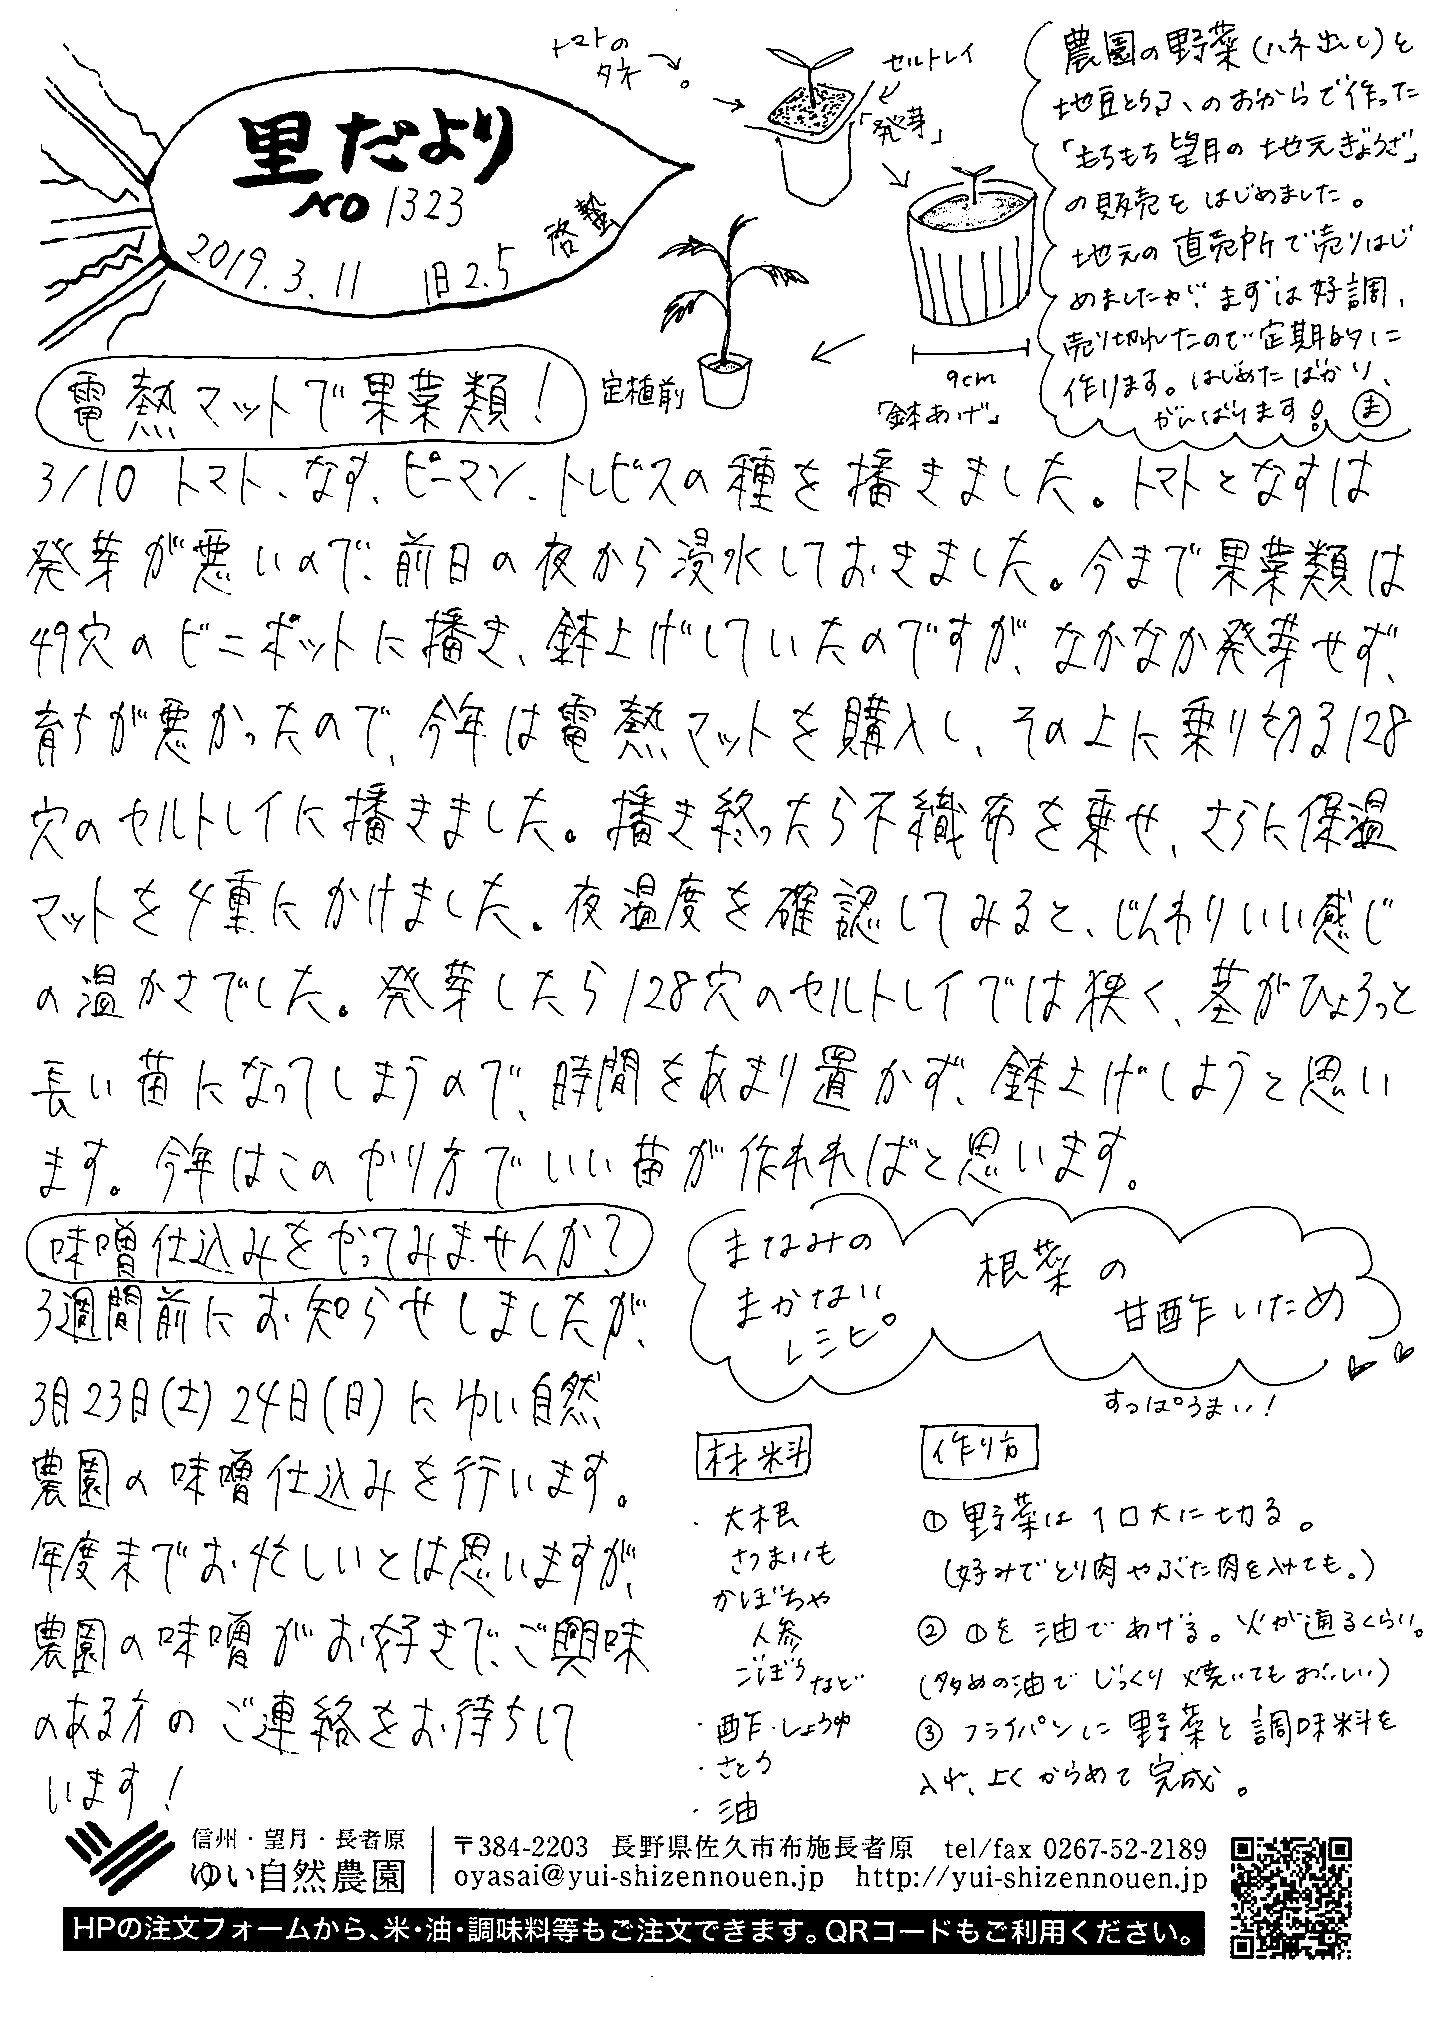 里だより
NO 1323
2019.3.11 旧2.5 啓蟄
トマトの
タネ
セルトレイ
「発芽」
9cm
「鉢あげ」
定植前
農園の野菜(ハネ出し)と
地豆とうふのおからで作った
「もちもち望月の地元ぎょうざ」
の販売をはじめました。
地元の直売所で売りはじ
めましたが、まずは好調、
売り切れたので定期的に
作ります。はじめたばかり、
がんばります! ま
電熱マットで果菜類!
3/10 トマト、なす、ピーマン、トレビスの種を播きました。トマトとなすは
発芽が悪いので、前日の夜から浸水しておきました。今まで果菜類は
49穴のビニポットに播き、鉢上げしていたのですが、なかなか発芽せず、
育ちが悪かったので、今年は電熱マットを購入し、その上に乗り切る128
穴のセルトレイに播きました。播き終ったら不織布を乗せ、さらに保温
マットを4重にかけました。夜温度を確認してみると、じんわりいい感じ
の温かさでした。発芽したら128穴のセルトレイでは狭く、茎がひょろっと
長い苗になってしまうので、時間をあまり置かず、鉢上げしようと思い
ます。今年はこのやり方でいい苗が作れればと思います。
味噌仕込みをやってみませんか?
3週間前にお知らせしましたが、
3月23日(土)24日(日)にゆい自然
農園の味噌仕込みを行います。
年度末でお忙しいとは思いますが、
農園の味噌がお好きで、ご興味
のある方のご連絡をお待ちして
います!
まなみの
まかない
レシピ。
根菜の
甘酢いため
すっぱうまい!
材料
・大根
さつまいも
かぼちゃ
人参
ごぼう など
・酢・しょうゆ
・さとう
・油
作り方
①野菜は1口大に切る。
(好みでとり肉やぶた肉を入れても。)
②①を油であげる。火が通るくらい。
(多めの油でじっくり焼いてもおいしい)
③フライパンに野菜と調味料を
入れ、よくからめて完成。
信州・望月・長者原
ゆい自然農園
〒384-2203 長野県佐久市布施長者原 tel/fax 0267-52-2189
oyasai@yui-shizennouen.jp http://yui-shizennouen.jp
HPの注文フォームから、米・油・調味料等もご注文できます。QRコードもご利用ください。